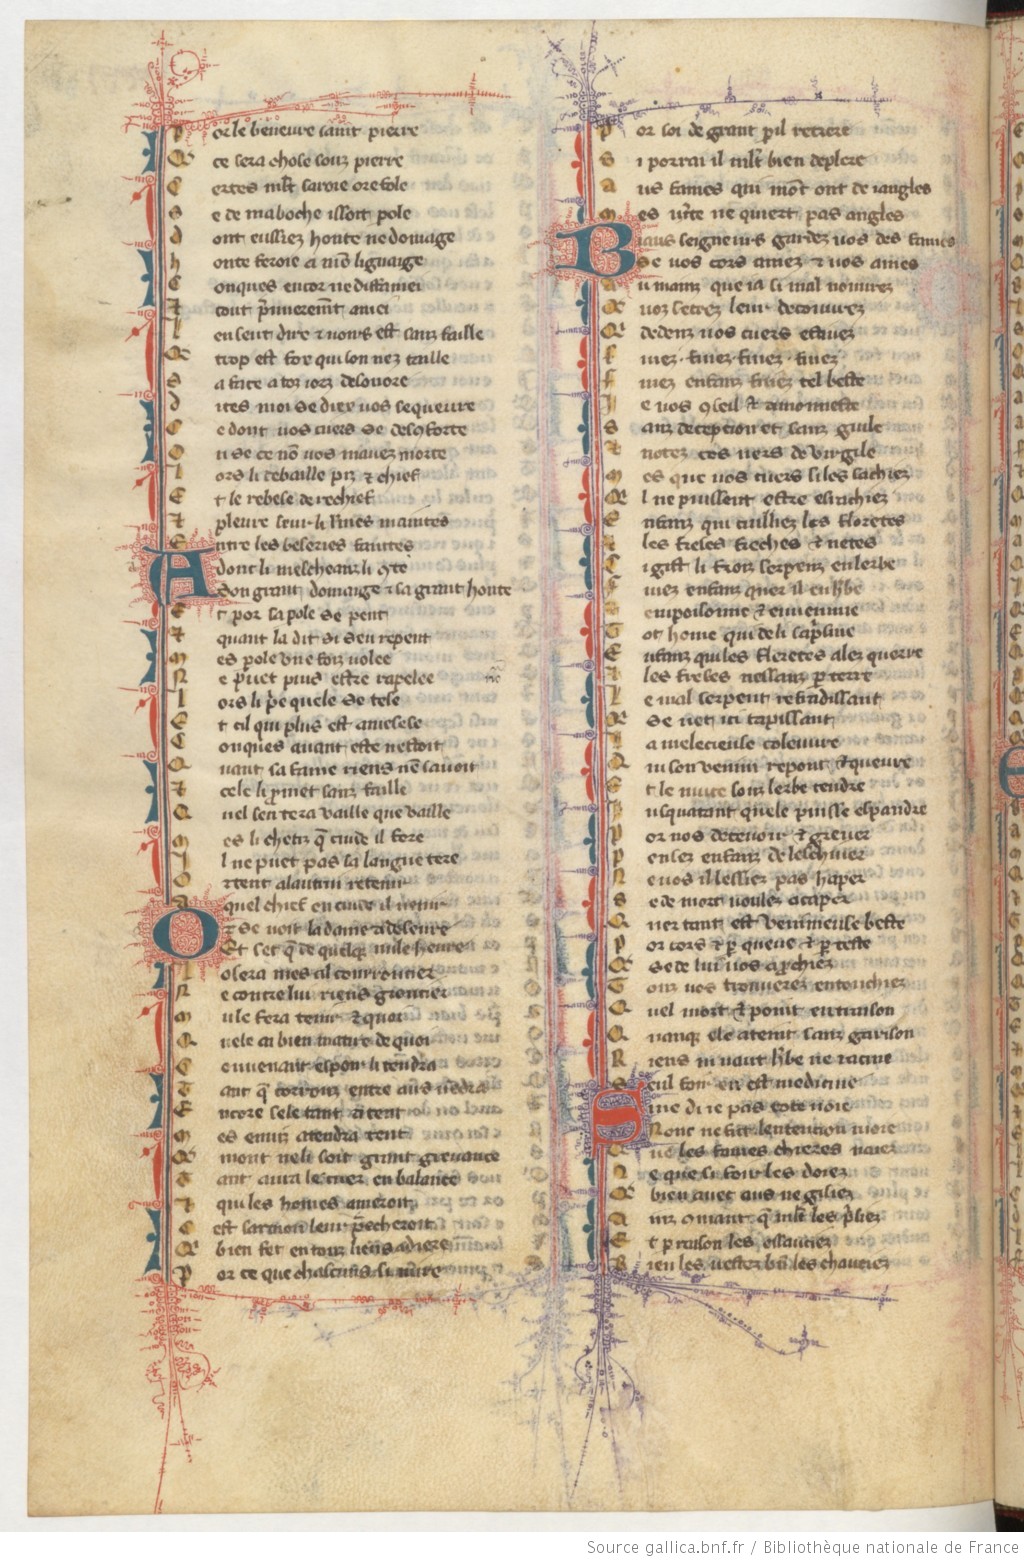 Por le beneure saint pierre
Que ce sera chose souz pierre
Certes mlt savoie ore fole
Se de ma boche issoit pole
dont eussiez honte ne domage
honte feroie a mon lignaige
Conques encor ne diffamei
tout premierement amei
trop est fox qui son nez taille
A sa face a toz iorz desonore
dites moi se diex vos sequeure
dont vos cuers se desconforte
Ou se ce non vos mavez morte
lors li debaille piz et chief
Et le rebese de rechief
pleure seur li
Entre les beseries faintes
Adonc li mescheanz li conte
Son grant domaige et sa grant honte
Et por sa pole se pent
quant la dit si sen repent
mes pole une foiz volee
Ne puet pius estre rapelee
lors li prie quele se tese
Et cil qui plus est a mesese
Conques avant este nestoit
Quant sa fame riens nen savoit
cele li promet sanz faille
Quel sen tera vaille que vaille
mes li chetiz que cuide il fere
Il ne puet pas sa langue tere
Or tent a lautrui retenir
A quel chief en cuide il venir
Or se voit la dame a deseure
Et set que de quelque heure
Nosera mes al
Ne contre lui riens
mu le fera tenir et quoi
Quele a bien matire de quoi
Convenant espoir li tendra
Tant que corrouz entre aus vendra
Encore sele tant atent
mes enuiz atendra tent
Que mont ne li soit grant grevance
Tant aura le cuer en balance
qui les homes ameroit
Cest sarmon leur preecheroit
Que bien fet en touz liens a dire
Por ce que chascuns si mire
Por soi de grant peril retrere
Si porrai il mlt bien deplere
Aus fames qui mont ont de iangles
mes verite ne quiert pas angles
Biaus seigneurs gardez vos des fames
Se vos cors amez et vos ames
Au mainz que ia si mal nouvrez
Que voz secrez leur decouvrez
Que dedenz vos cuers estuiez
fuiez fuiez fuiez fuiez
fuiez enfanz fuiez tel beste
Ie vos conseil et amonneste
Sanz decepcion et sanz guile
notez ces vers de virgile
mes que vos cuers si les sachiez
Quil ne puissent estre esrachiez
Enfanz qui cuilliez les floretes
les freses fresches et netes
Ci gist li froiz serpenz en lerbe
fuiez enfanz quer il enherbe
Enpoisonne et envenime
Tot home qui de li saprisme
Enfanz qui les floretes alez querre
les freses nessanz par terre
le mal serpent refroidissant
Que se vet ici tapissant
la malicieuse coleuvre
Qui son venin repont et queuvre
Et le muce souz lerbe tendre
Iusqua tant quele puisse espandre
por nos decevoir et grever
pensez enfanz de leschiver
Ne vos i lessiez pas haper
Se de mort voulez
Quer tant est venimeuse beste
Por cors et par queue et par teste
Que se de lui vos aprochiez
Touz vos trouverez entouchiez
Quel mort et point en traison
Quanque ele atent sanz garison
Riens ni vaut herbe ne racine
Seul foir en est medicine
Si ne di ie pas toute voie
Nonc ne fu lentencion moie
Que les fames chieres naiez
Ne que si foir les doiez
Que bien avec aus ne gisiez
Ainz comant que mlt les prisiez
Et par raison les essauciez
Bien les vestez bien les chauciez